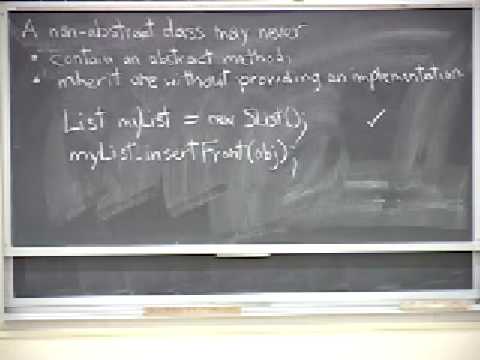 A non-abstract class may never
• contain an abstract method;
• inherit one without providing an implementation
List myList = new SList(); ✓
myList.insertFront(obj);